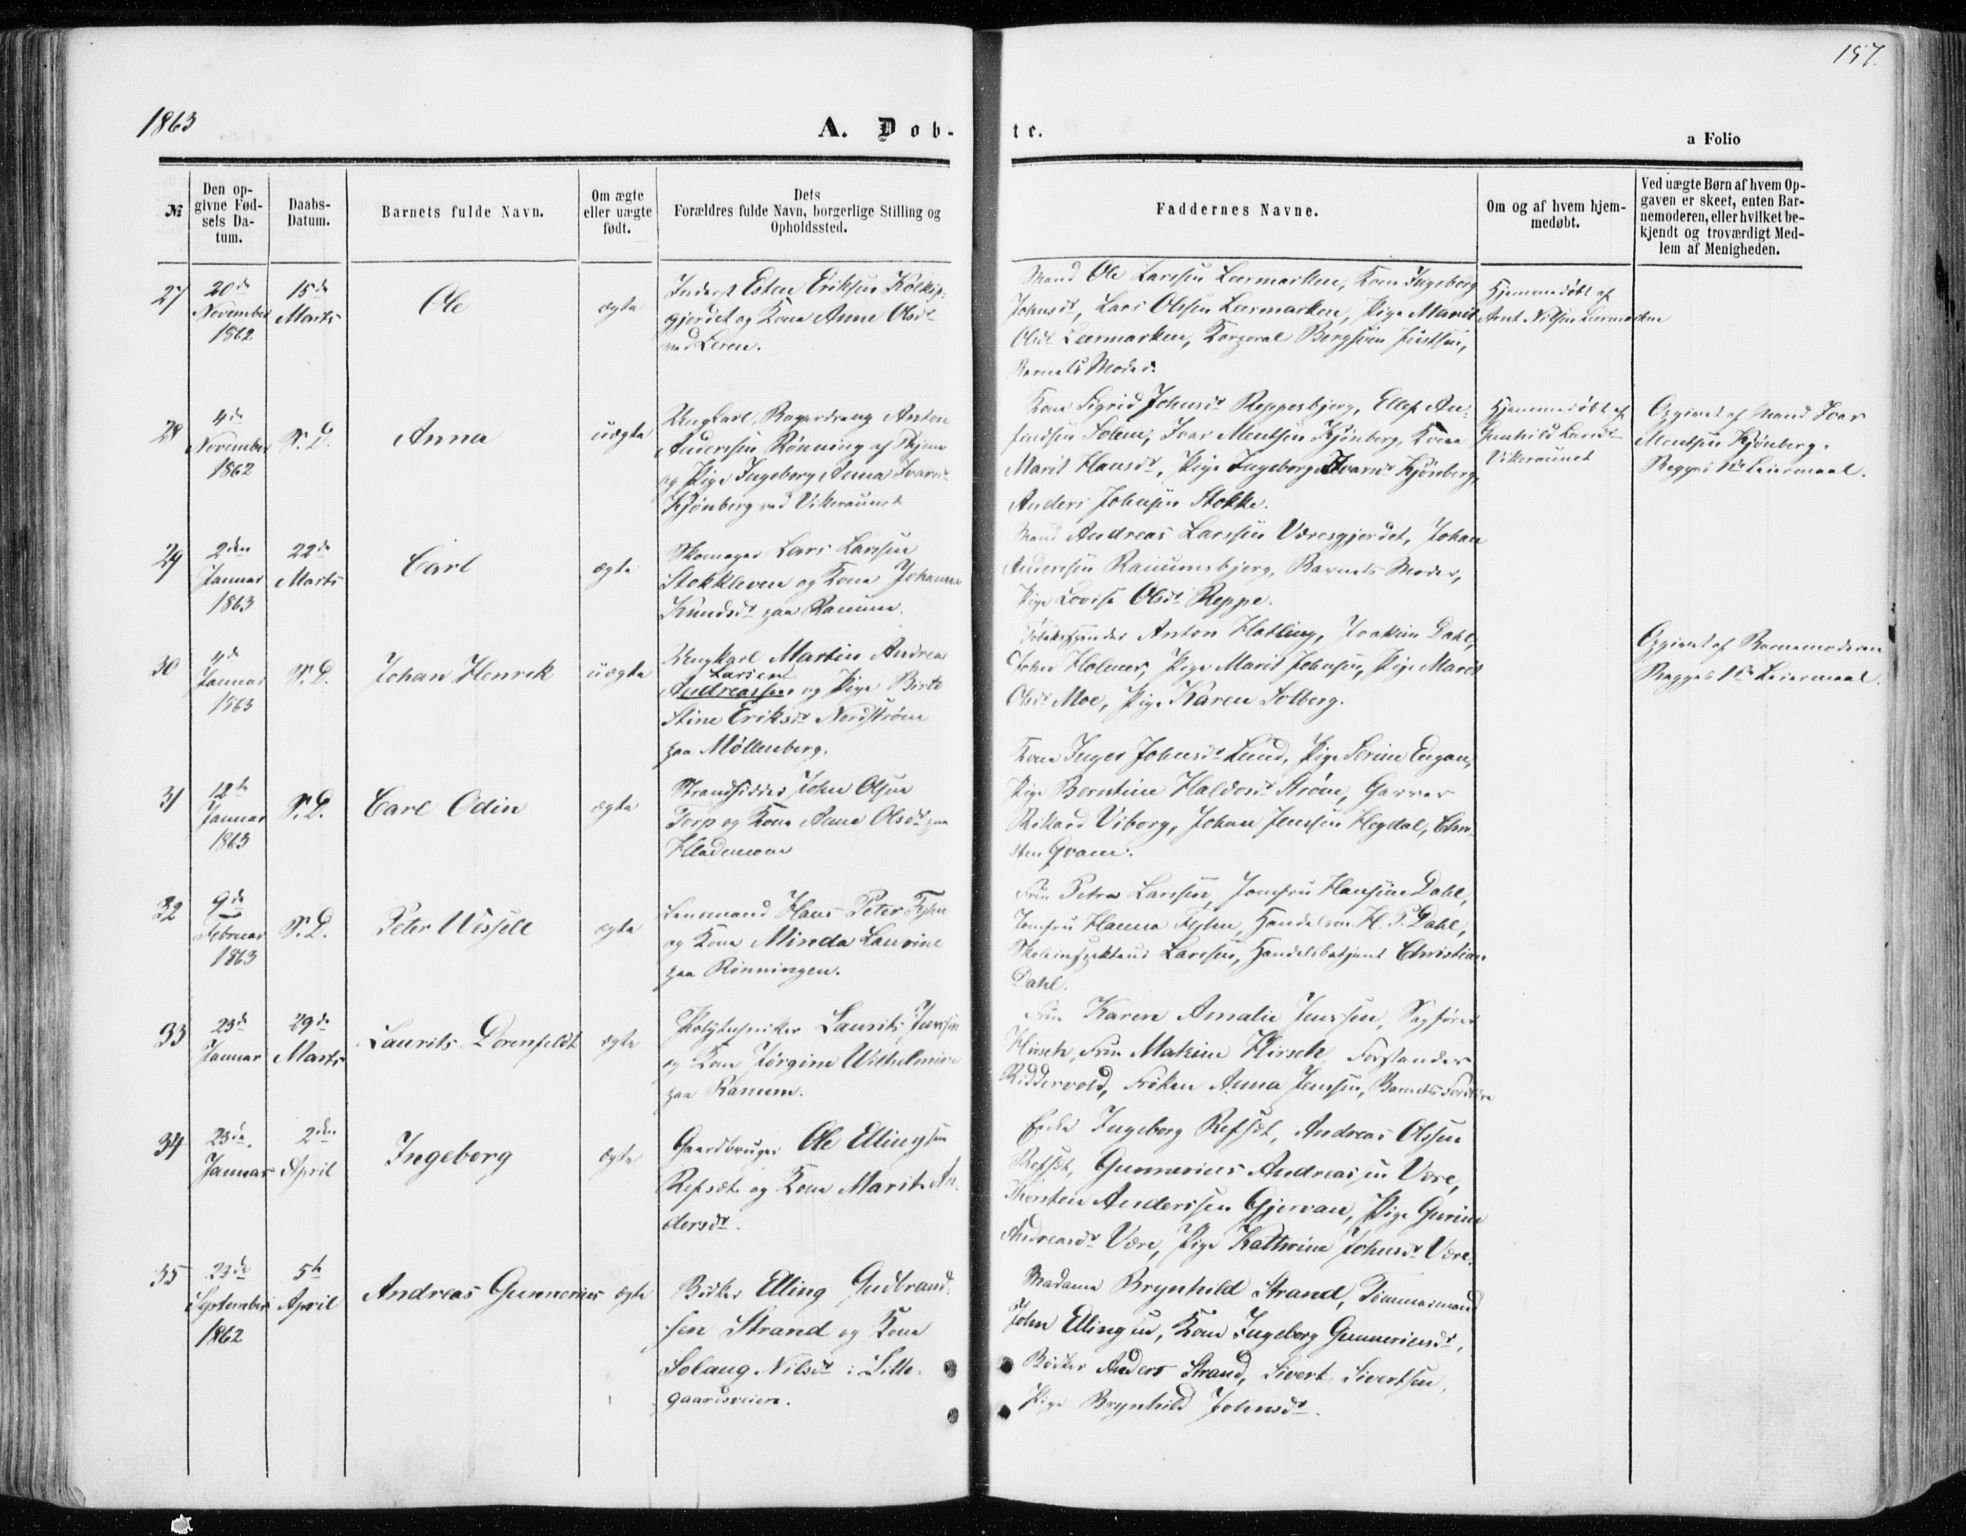 1863
A. Døb-
te.
157.
a Folio
№
Den op-
givne Fød-
sels Da-
tum.
Daabs-
Datum.
Barnets fulde Navn.
Om ægte
eller uægte
født.
Dets
Forældres fulde Navn, borgerlige Stilling og
Opholdssted.
Faddernes Navne.
Om og af hvem hjem-
medøbt.
Ved uægte Børn af hvem Op-
gaven er skeet, enten Bar-
nemoderen, eller hvilket be-
kjendt og troværdigt Med-
lem af Menigheden.
27
20de
November
1862
15de
Marts
Ole
ægte
Inderst Esten Eriksen
gjerdet og Kone Anne Olsdt
ved Leren.
Mand Ole Larssen Leermarken, Kone Ingeborg
Johnsdt, Lars Olssen Leermarken, Pige Marit
Olsdt Leermarken, Korporal Bergsven
Barnets Moder.
Hjemmedøbt af
Arnt Nilsen Leermarken
28
4de
November
1862
S. D.
Anna
uægte
Ungkarl, Bagerdreng Anton
Andersen Rønning af Thjem
og Pige Ingeborg Anna Ivarsdt
Kjønberg ved Vikeraunet
Kone Sigrid Johnsdt Reppesbjerg, Ellef An-
findsen Solem, Ivar Mentsen Kjønberg, Kone
Marit Hansdt, Pige Ingeborg Ivarsdt Kjønberg,
Anders Johnsen Stokke.
Hjemmedøbt af
Gunhild Larsdt
Vikeraunet
Opgivet af Mand Ivar
Mentsen Kjønberg.
Begges 1ste Leiermaal.
29
2den
Januar
1863
22de
Marts
Carl
ægte
Skomager Lars Larssen
Stokkleven og Kone Johanna
Knudsdt paa Ranum.
Mand Andreas Larssen Væresgjerdet, Johan
Andersen Ranumsbjerg, Barnets Moder,
Pige Lovise Olsdt Reppe.
30
4de
Januar
1863
S. D.
Johan Henrik
uægte
Ungkarl Martin Andreas
Larsen
Andreassen og Pige Birte
Stine Eriksdt Nordstrøm
paa Møllenberg.
Anton Hatling, Joakim Dahl,
John Holmer, Pige Marit Johnsen, Pige Marit
Olsdt Moe, Pige Karen Solberg.
Opgivet af Barnemoderen
Begges 1ste Leiermaal.
31
12te
Januar
1863
S. D.
Carl Odin
ægte
Strandsidder John Olsen
Torp og Kone Anne Olsdt paa
Hlademoen
Kone Inger Johnsdt Lund, Pige Serine Engan,
Pige Berntine Haldosdt Strøm, Garver
Rikard Viborg, Johan Jenssen Hegdal, Chri-
sten Gram.
32
9de
Februar
1863
S. D.
Peter Wissele
ægte
Lensmand Hans Peter Fehn
og Kone Minda Laurine
paa Rønningen.
Fru Petra Larssen, Jomfru Hansine Dahl,
Jomfru Hanna Fehn, Handelsm. H. P. Dahl,
Skoleinspekteur Larssen, Handelsbetjent Christian
Dahl.
33
23de
Januar
29de
Marts
Laurits Dorenfeldt
ægte
Polytekniker Laurits Jenssen
og Kone Jørgine Wilhelmine
paa Ranum.
Fru Karen Amalie Jenssen, Sagfører
Hirsch, Fru Makine Hirsch, Forstander
Riddervold, Frøken Anna Jenssen, Barnets Forældre
34
23de
Januar
2den
April
Ingeborg
ægte
Gaardbruger Ole Ellingsen
Refset og Kone Marit An-
dersdt.
Enke Ingeborg Refset, Andreas Olssen
Refset, Gunnerius Andreassen Være,
Thorsten Anderssen Gjervan, Pige Gurine
Andreasdt Være, Pige Kathrine Johnsdt Være.
35
23de
September
1862
5te
April
Andreas Gunnerius
ægte
Bødker Elling Gudbrand-
sen Strand og Kone
Solaug Nilsdt i Lille-
gaardsveien.
Madame Brynhild Strand, Tømmermand
John Ellingsen, Kone Ingeborg Gunneriusdt,
Bødker Anders Strand, Sivert Sivertsen,
Pige Brynhild Johnsdt.